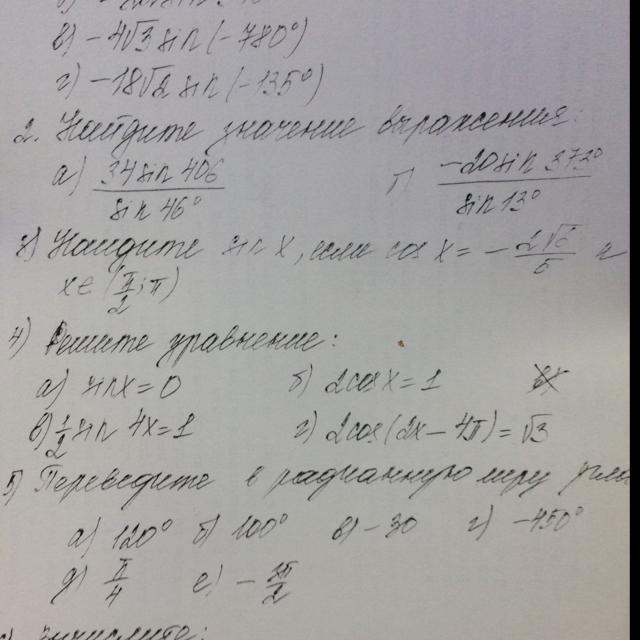 в) -4√3 sin (-780°)
г) -18√2 sin (-135°)
2. Найдите значение выражения:
а) 34 sin 406 / sin 46° б) -20 sin 373° / sin 13°
3) Найдите sin x, если cos x = - 2√6 / 5 и
x ∈ (π/2; π)
4) Решите уравнение:
а) sin x = 0 б) 2cos x = 1
в) 1/2 sin 4x = 1 г) 2cos(2x - 4π) = √3
5) Переведите в радианную меру
а) 120° б) 100° в) -30 г) -450°
д) π/4 е) - π/2